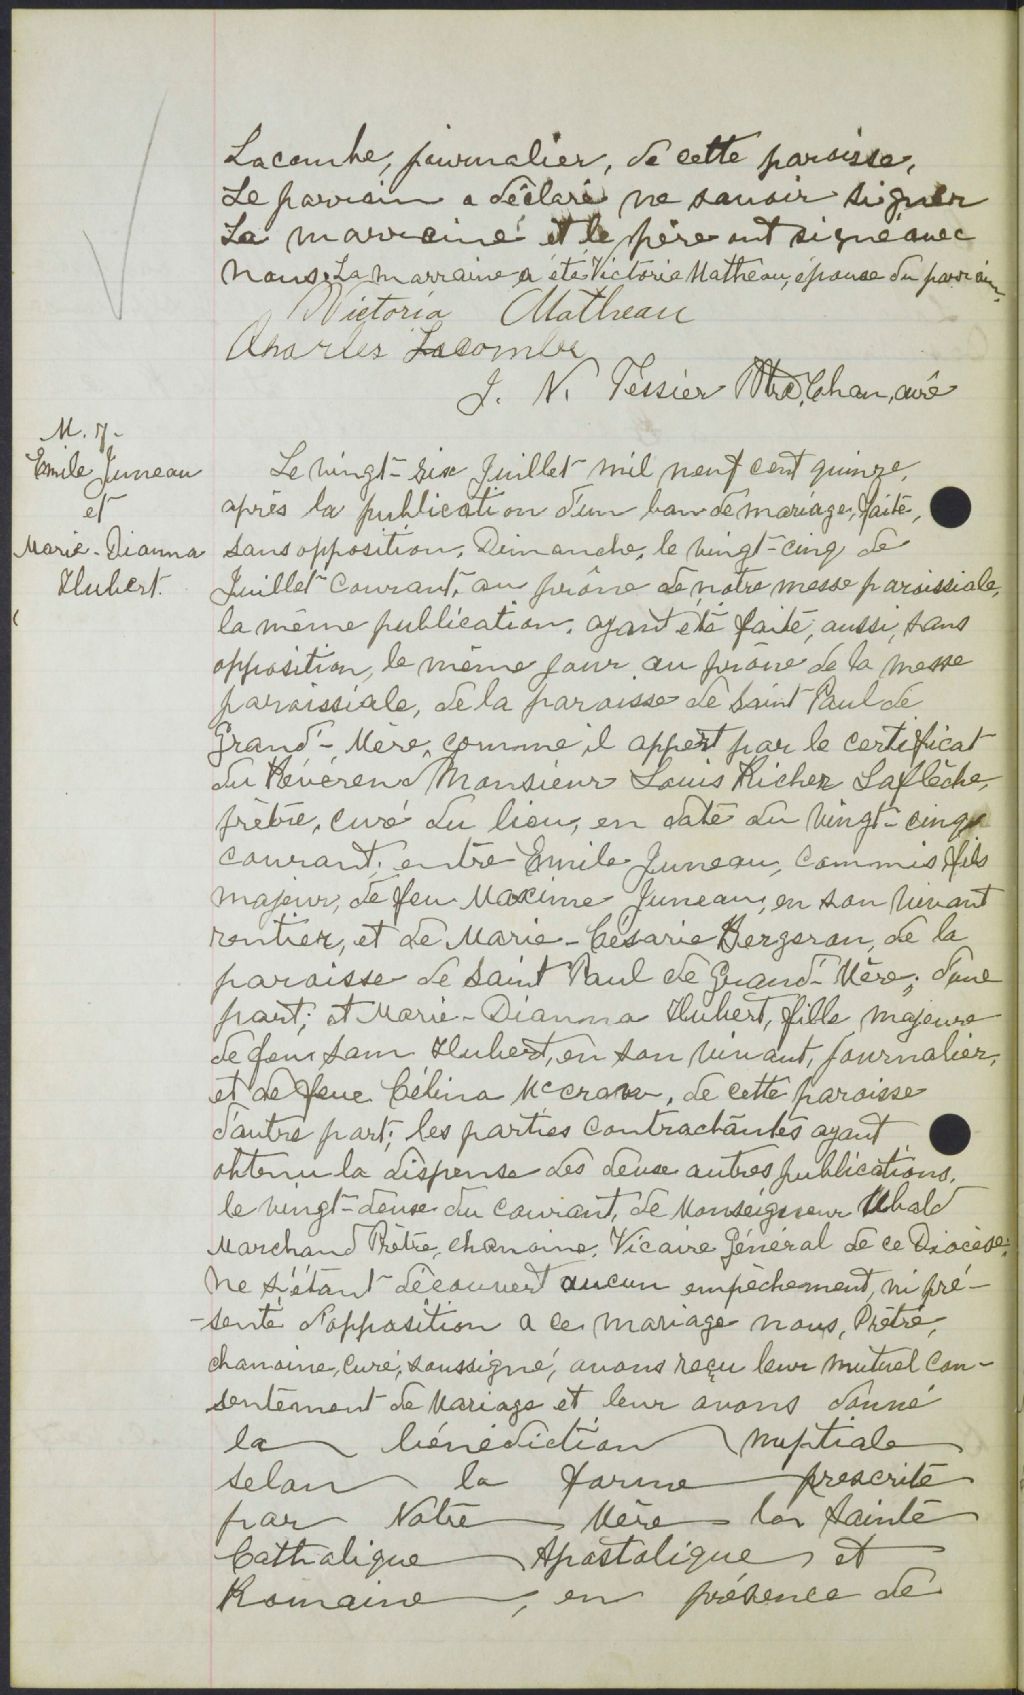 Lacombe, journalier, de cette paroisse,
Le parrain a déclaré ne savoir signer
La marraine et le père ont signé avec
nous. La marraine a été Victoria Matheau, épouse du parrain.
Victoria Matheau
Charles Lacombe
J. N. Tessier Ptre, Chan, curé
M. 7-
Emile Juneau
et
Marie-Dianna
Hubert.
Le vingt-six Juillet mil neuf cent quinze,
après la publication d'un ban de mariage, faite,
sans opposition, Dimanche, le vingt-cinq de
Juillet courant, au prône de notre messe paroissiale,
la même publication, ayant été faite, aussi, sans
opposition, le même jour au prône de la messe
paroissiale, de la paroisse de Saint Paul de
Grand'-Mère, comme il appert par le certificat
du Révérend Monsieur Louis Richer Laflèche,
prêtre, curé du lieu, en date du vingt-cinq
courant; entre Emile Juneau, commis fils
majeur, de feu Maxime Juneau, en son vivant
rentier, et de Marie-Césarie Bergeron, de la
paroisse de Saint Paul de Grand-Mère; d'une
part; et Marie-Dianna Hubert, fille majeure
de feu Sam Hubert, en son vivant, journalier,
et de feue Célina McCraw, de cette paroisse
d'autre part; les parties contractantes ayant
obtenu la dispense des deux autres publications,
le vingt-deux du courant, de Monseigneur Ubald
Marchand Prêtre, chanoine, Vicaire Général de ce Diocèse;
ne s'étant découvert aucun empêchement, ni pré-
-senté d'opposition a ce mariage nous, Prêtre,
chanoine, curé, soussigné, avons reçu leur mutuel con-
sentement de Mariage et leur avons donné
la bénédiction nuptiale
selon la forme prescrite
par Notre Mère la Sainte
Catholique Apostolique et
Romaine, en présence de